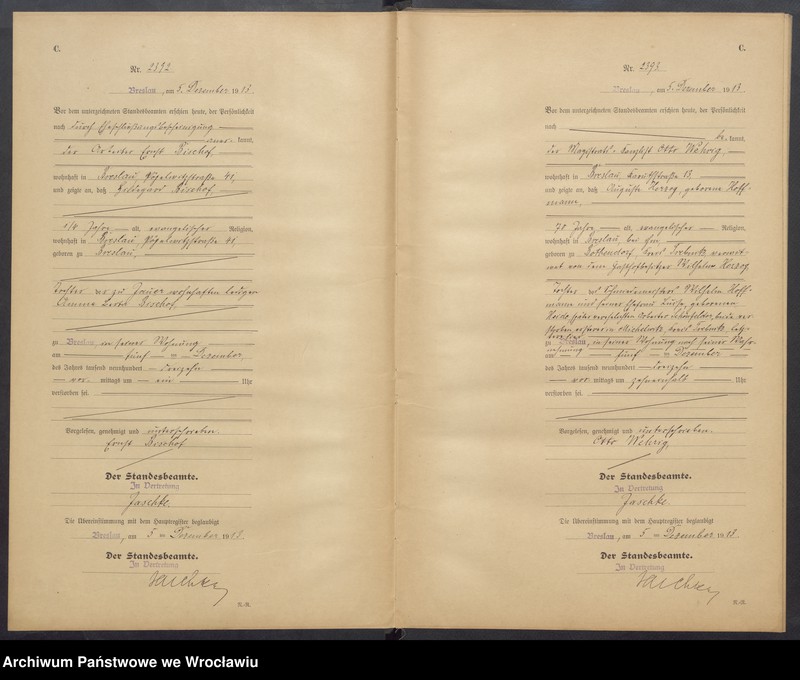 C.
Nr. 2392
Breslau, am 5. Dezember 1913.
Vor dem unterzeichneten Standesbeamten erschien heute, der Persönlichkeit
nach durch
kannt,
der Arbeiter Ernst Bischof,
wohnhaft in Breslau, 41,
und zeigte an, daß Bischof,
1/4 Jahre alt, evangelischer Religion,
wohnhaft in Breslau 41,
geboren zu Breslau,
Tochter der zu Jauer wohnhaften ledigen
Bischof,
zu Breslau, in seiner Wohnung
am fünf ten Dezember
des Jahres tausend neunhundert dreizehn
vor mittags um ein Uhr
verstorben sei.
Vorgelesen, genehmigt und unterschrieben.
Ernst Bischof
Der Standesbeamte.
In Vertretung
Jaschke.
Die Übereinstimmung mit dem Hauptregister beglaubigt
Breslau, am 5 ten Dezember 1913.
Der Standesbeamte.
In Vertretung
Jaschke
R.-R.
C.
Nr. 2393
Breslau, am 5. Dezember 1913
Vor dem unterzeichneten Standesbeamten erschien heute, der Persönlichkeit
nach
be kannt,
der Magistrats-Kanzlist Otto Wehrig,
wohnhaft in Breslau, 13
und zeigte an, daß Auguste Herzog, geborene Hoff-
mann,
70 Jahre alt, evangelischer Religion,
wohnhaft in Breslau, bei ihm,
geboren zu Kreis verwit-
wet von dem Wilhelm Herzog
Tochter des Schmiedemeisters Wilhelm Hoff-
mann und seiner Ehefrau geborenen
beide ver-
storben, Kreis
zu Breslau, in seiner Wohnung
am fünf ten Dezember
des Jahres tausend neunhundert dreizehn
vor mittags um zehneinhalb Uhr
verstorben sei.
Vorgelesen, genehmigt und unterschrieben.
Otto Wehrig,
Der Standesbeamte.
In Vertretung
Jaschke.
Die Übereinstimmung mit dem Hauptregister beglaubigt
Breslau, am 5 ten Dezember 1913.
Der Standesbeamte.
In Vertretung
Jaschke
R.-R.
Archiwum Państwowe we Wrocławiu